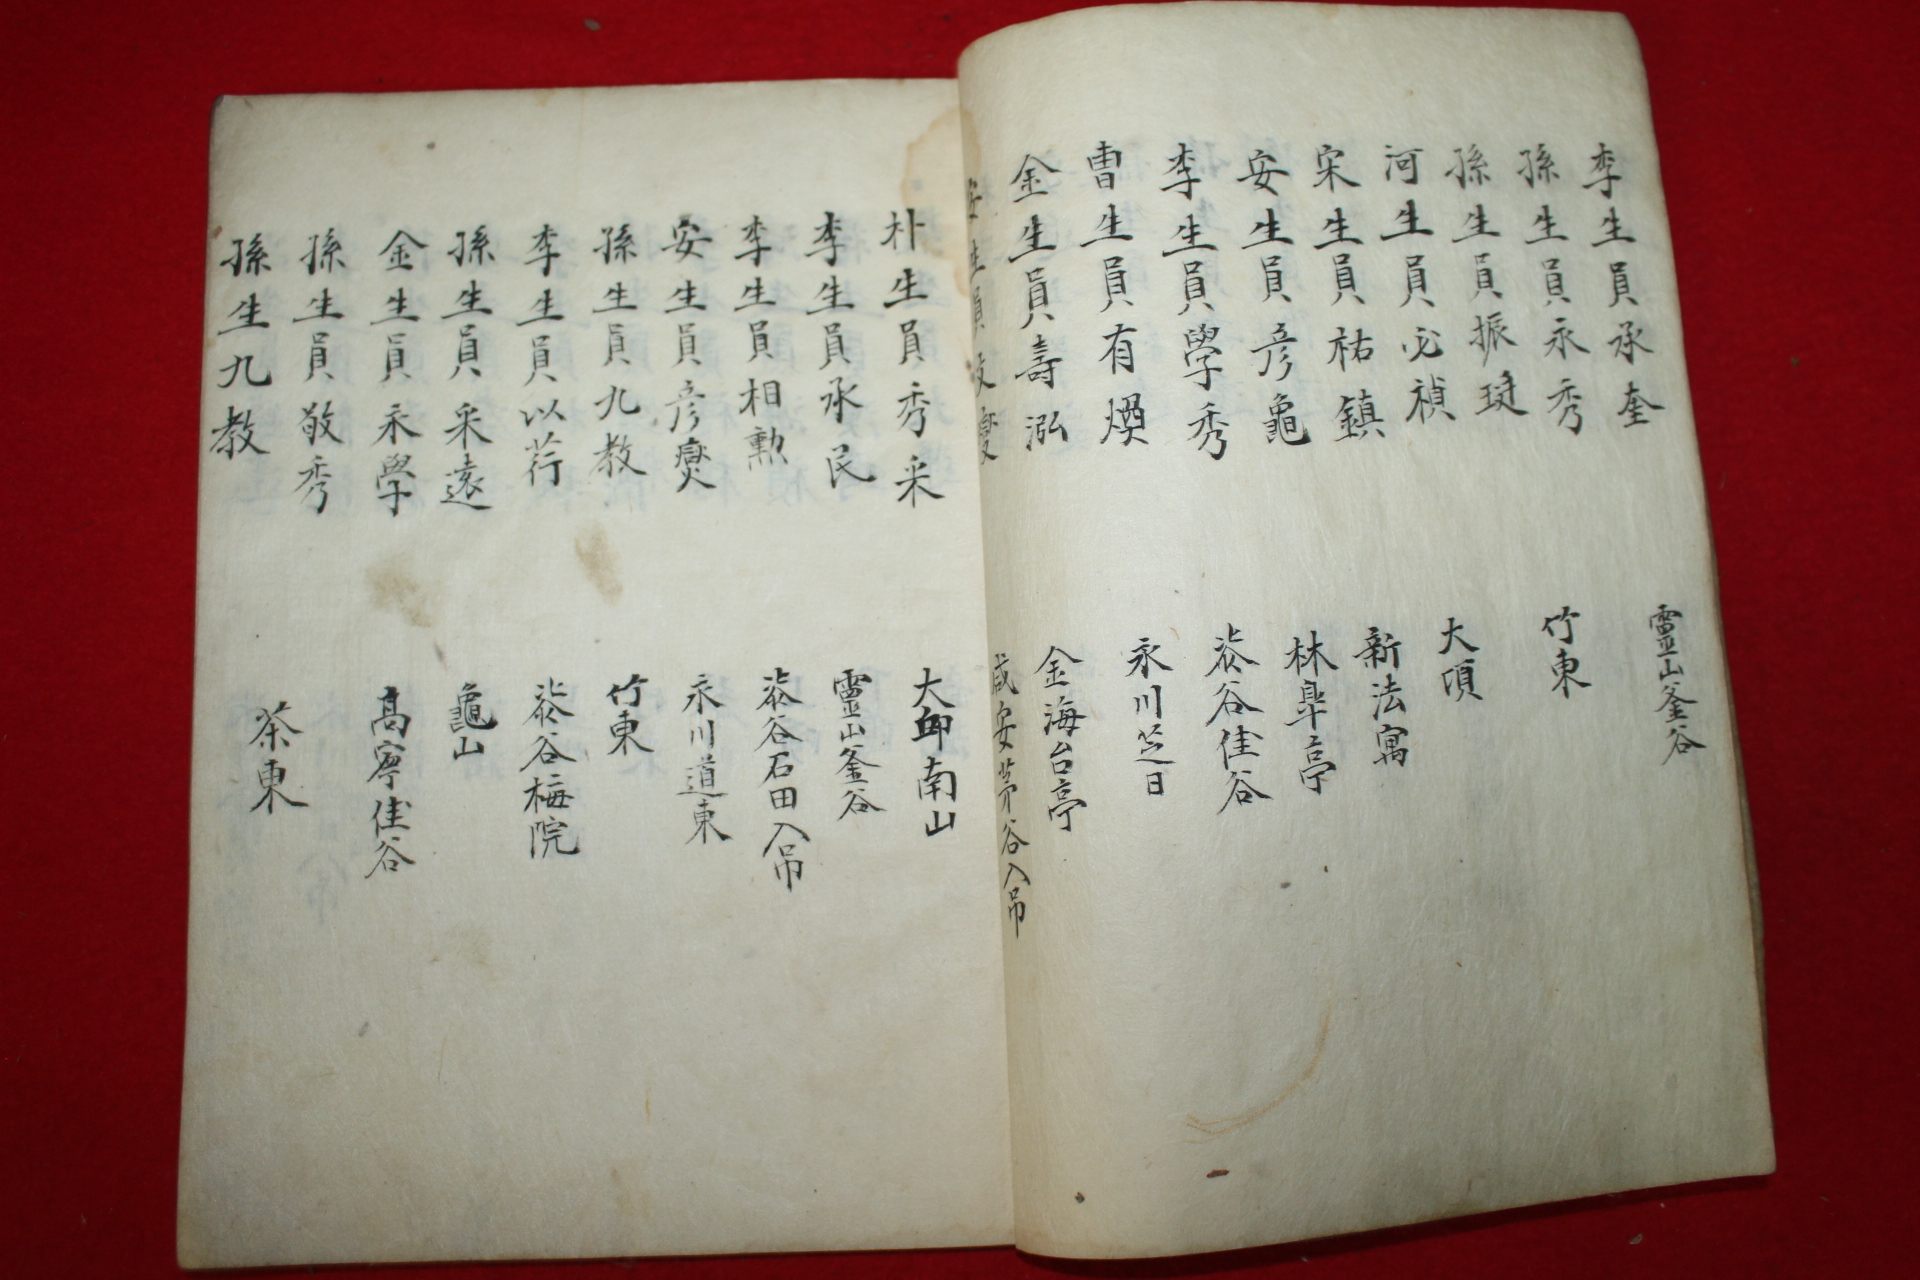 李生員承奎 靈山釜谷
孫生員永秀 竹東
孫生員振 大項
河生員必禎 新法寓
宋生員祐鎮 林皐亭
安生員彦龜 谷佳谷
李生員學秀 永川芝日
曺生員有煥
金生員壽泓 金海台亭
安生員 咸安茅谷入吊
朴生員秀采 大卽南山
李生員承民 靈山釜谷
李生員相勲 谷石田入吊
安生員彦爕 永川道東
孫生員九教 竹東
李生員以荇 谷梅院
孫生員采遠 龜山
金生員永學 高寧佳谷
孫生員敬秀
孫生九教 茶東